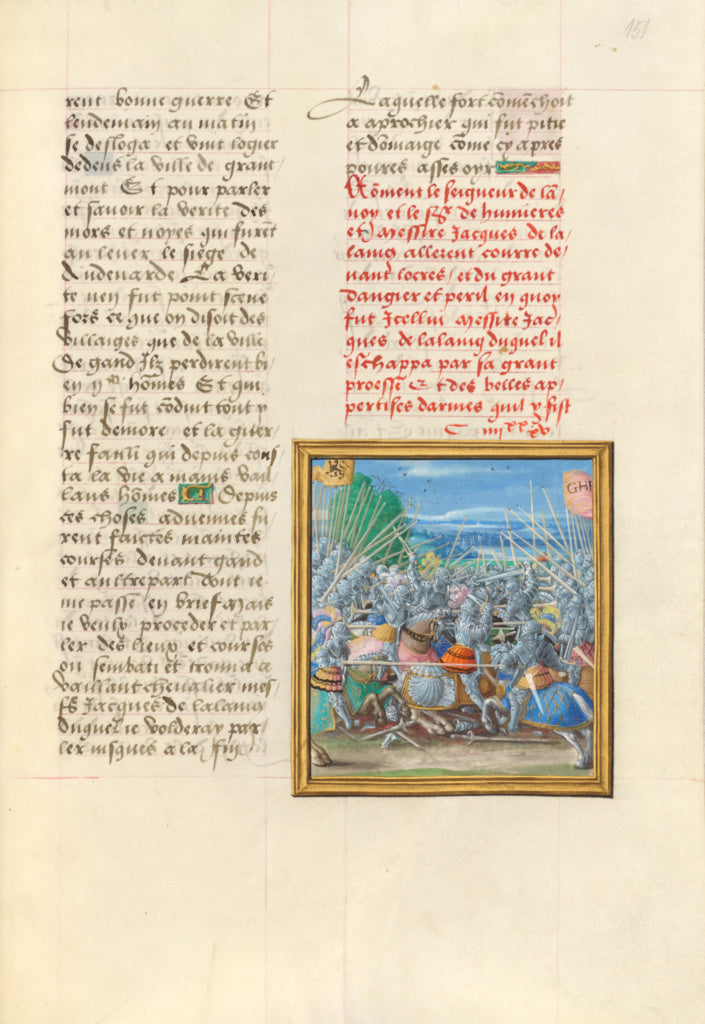 151
rent bonne guerre Et
lendemain au matin
se desloga et vint logier
dedens la ville de grant
mont Et pour parler
et sauoir la verite des
mors et noyes qui furẽt
au leuer le siege de
Audenarde La veri
te nen fut point sceue
fors ce que on disoit des
villaiges que de la ville
De gand Ilz perdirent bi
en hõmes Et qui
bien se fut cõduit tout y
fut demore et la guer
re failli qui depuis cous
ta la vie a mains vail
lans hõmes Depuis
ces choses aduenues fu
rent faictes maintes
courses deuant gand
et aultrepart dont ie
me passe en brief Mais
ie veulx proceder et par
ler des lieux et courses
ou sembati et trouua ce
vaillant cheualier mes
Jacques de lalaing
duquel ie volderay par
ler iusques a la fin
Laquelle fort cõmẽchoit
a aprochier qui fut pitie
et dõmaige cõme cy apres
poures asses oyr
Cõment le seigneur de lã/
noy et le sgr de humieres
et Messire Jacques de la-
laing allerent courre de/
uant locres / et du grant
dangier et peril en quoy
fut Icellui Messire Jac/
ques de lalaing duquel il
eschappa par sa grant
proesse Et des belles ap/
pertises darmes quil y fist
C iiii xx xv
GHE